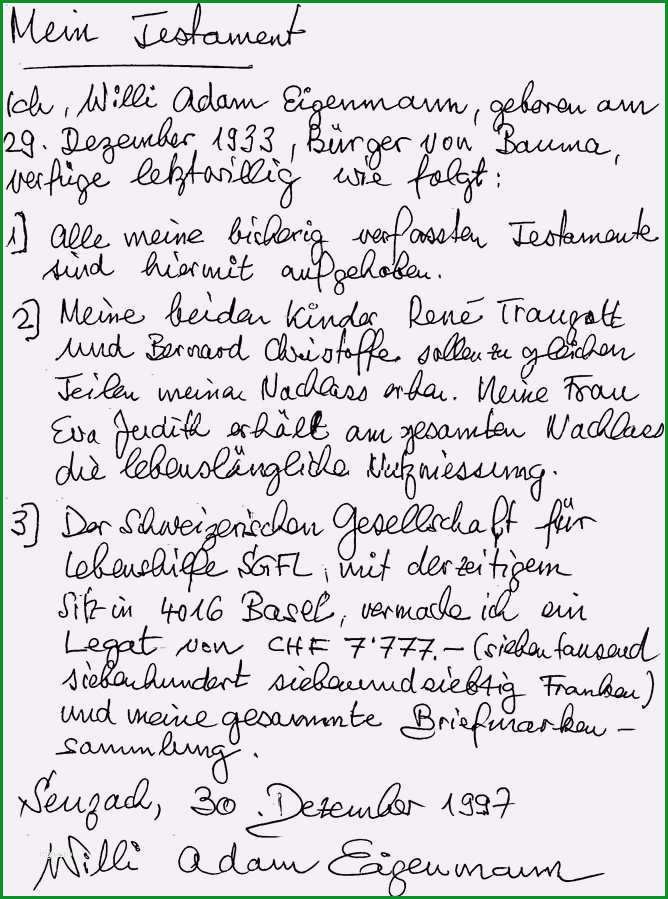 Mein Testament
Ich, Willi Adam Eigenmann, geboren am
29. Dezember 1933, Bürger von Bauma,
verfüge letztwillig wie folgt:
1] Alle meine bisherig verfassten Testamente
sind hiermit aufgehoben.
2] Meine beiden Kinder René Traugott
und Bernard Christoffe sollen zu gleichen
Teilen meinen Nachlass erben. Meine Frau
Eva Judith erhält am gesamten Nachlass
die lebenslängliche Nutzniessung.
3] Der Schweizerischen Gesellschaft für
Lebenshilfe SGFL, mit derzeitigem
Sitz in 4016 Basel, vermache ich ein
Legat von CHF 7'777.- (siebentausend
siebenhundert siebenundsiebzig Franken)
und meine gesammte Briefmarken-
sammlung.
Seuzach, 30. Dezember 1997
Willi Adam Eigenmann